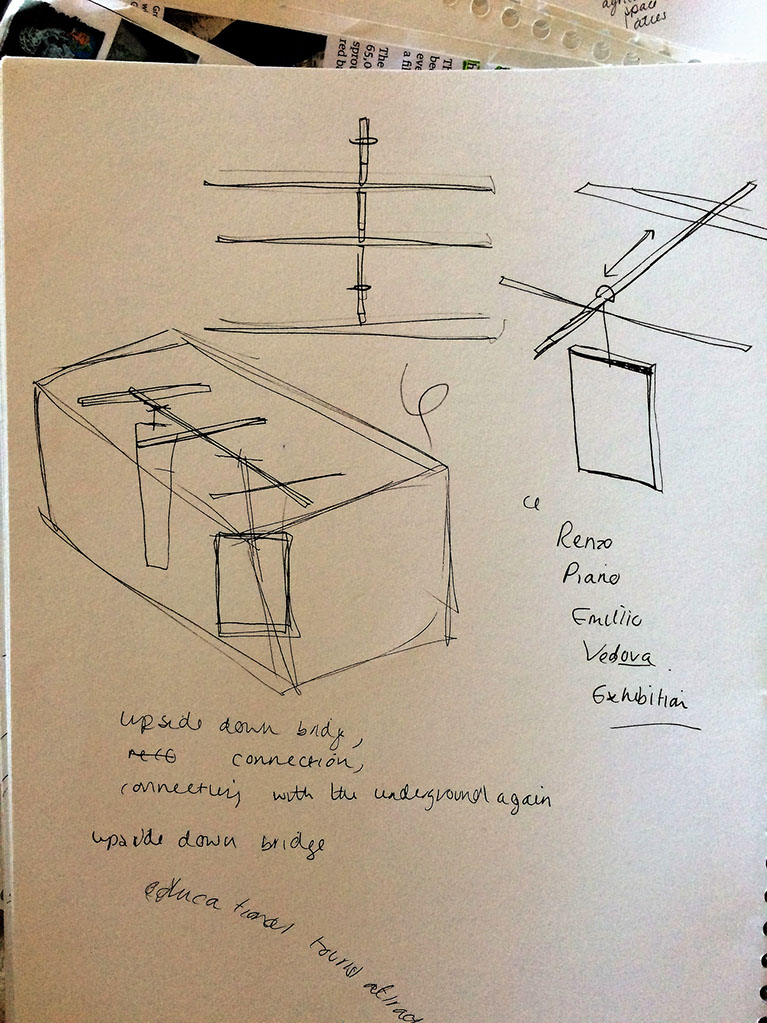 space
The
65,0
spro
red b
Renzo
Piano
Emilio
Vedova
Exhibition
upside down bridge,
connection,
connecting with the underground again
upside down bridge
educational tourist attract